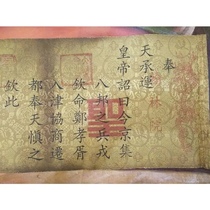 奉
天承運
皇帝詔曰今京集
八邦之兵戎
欽命鄭孝胥
八津協商遷
都奉天慎之
欽此